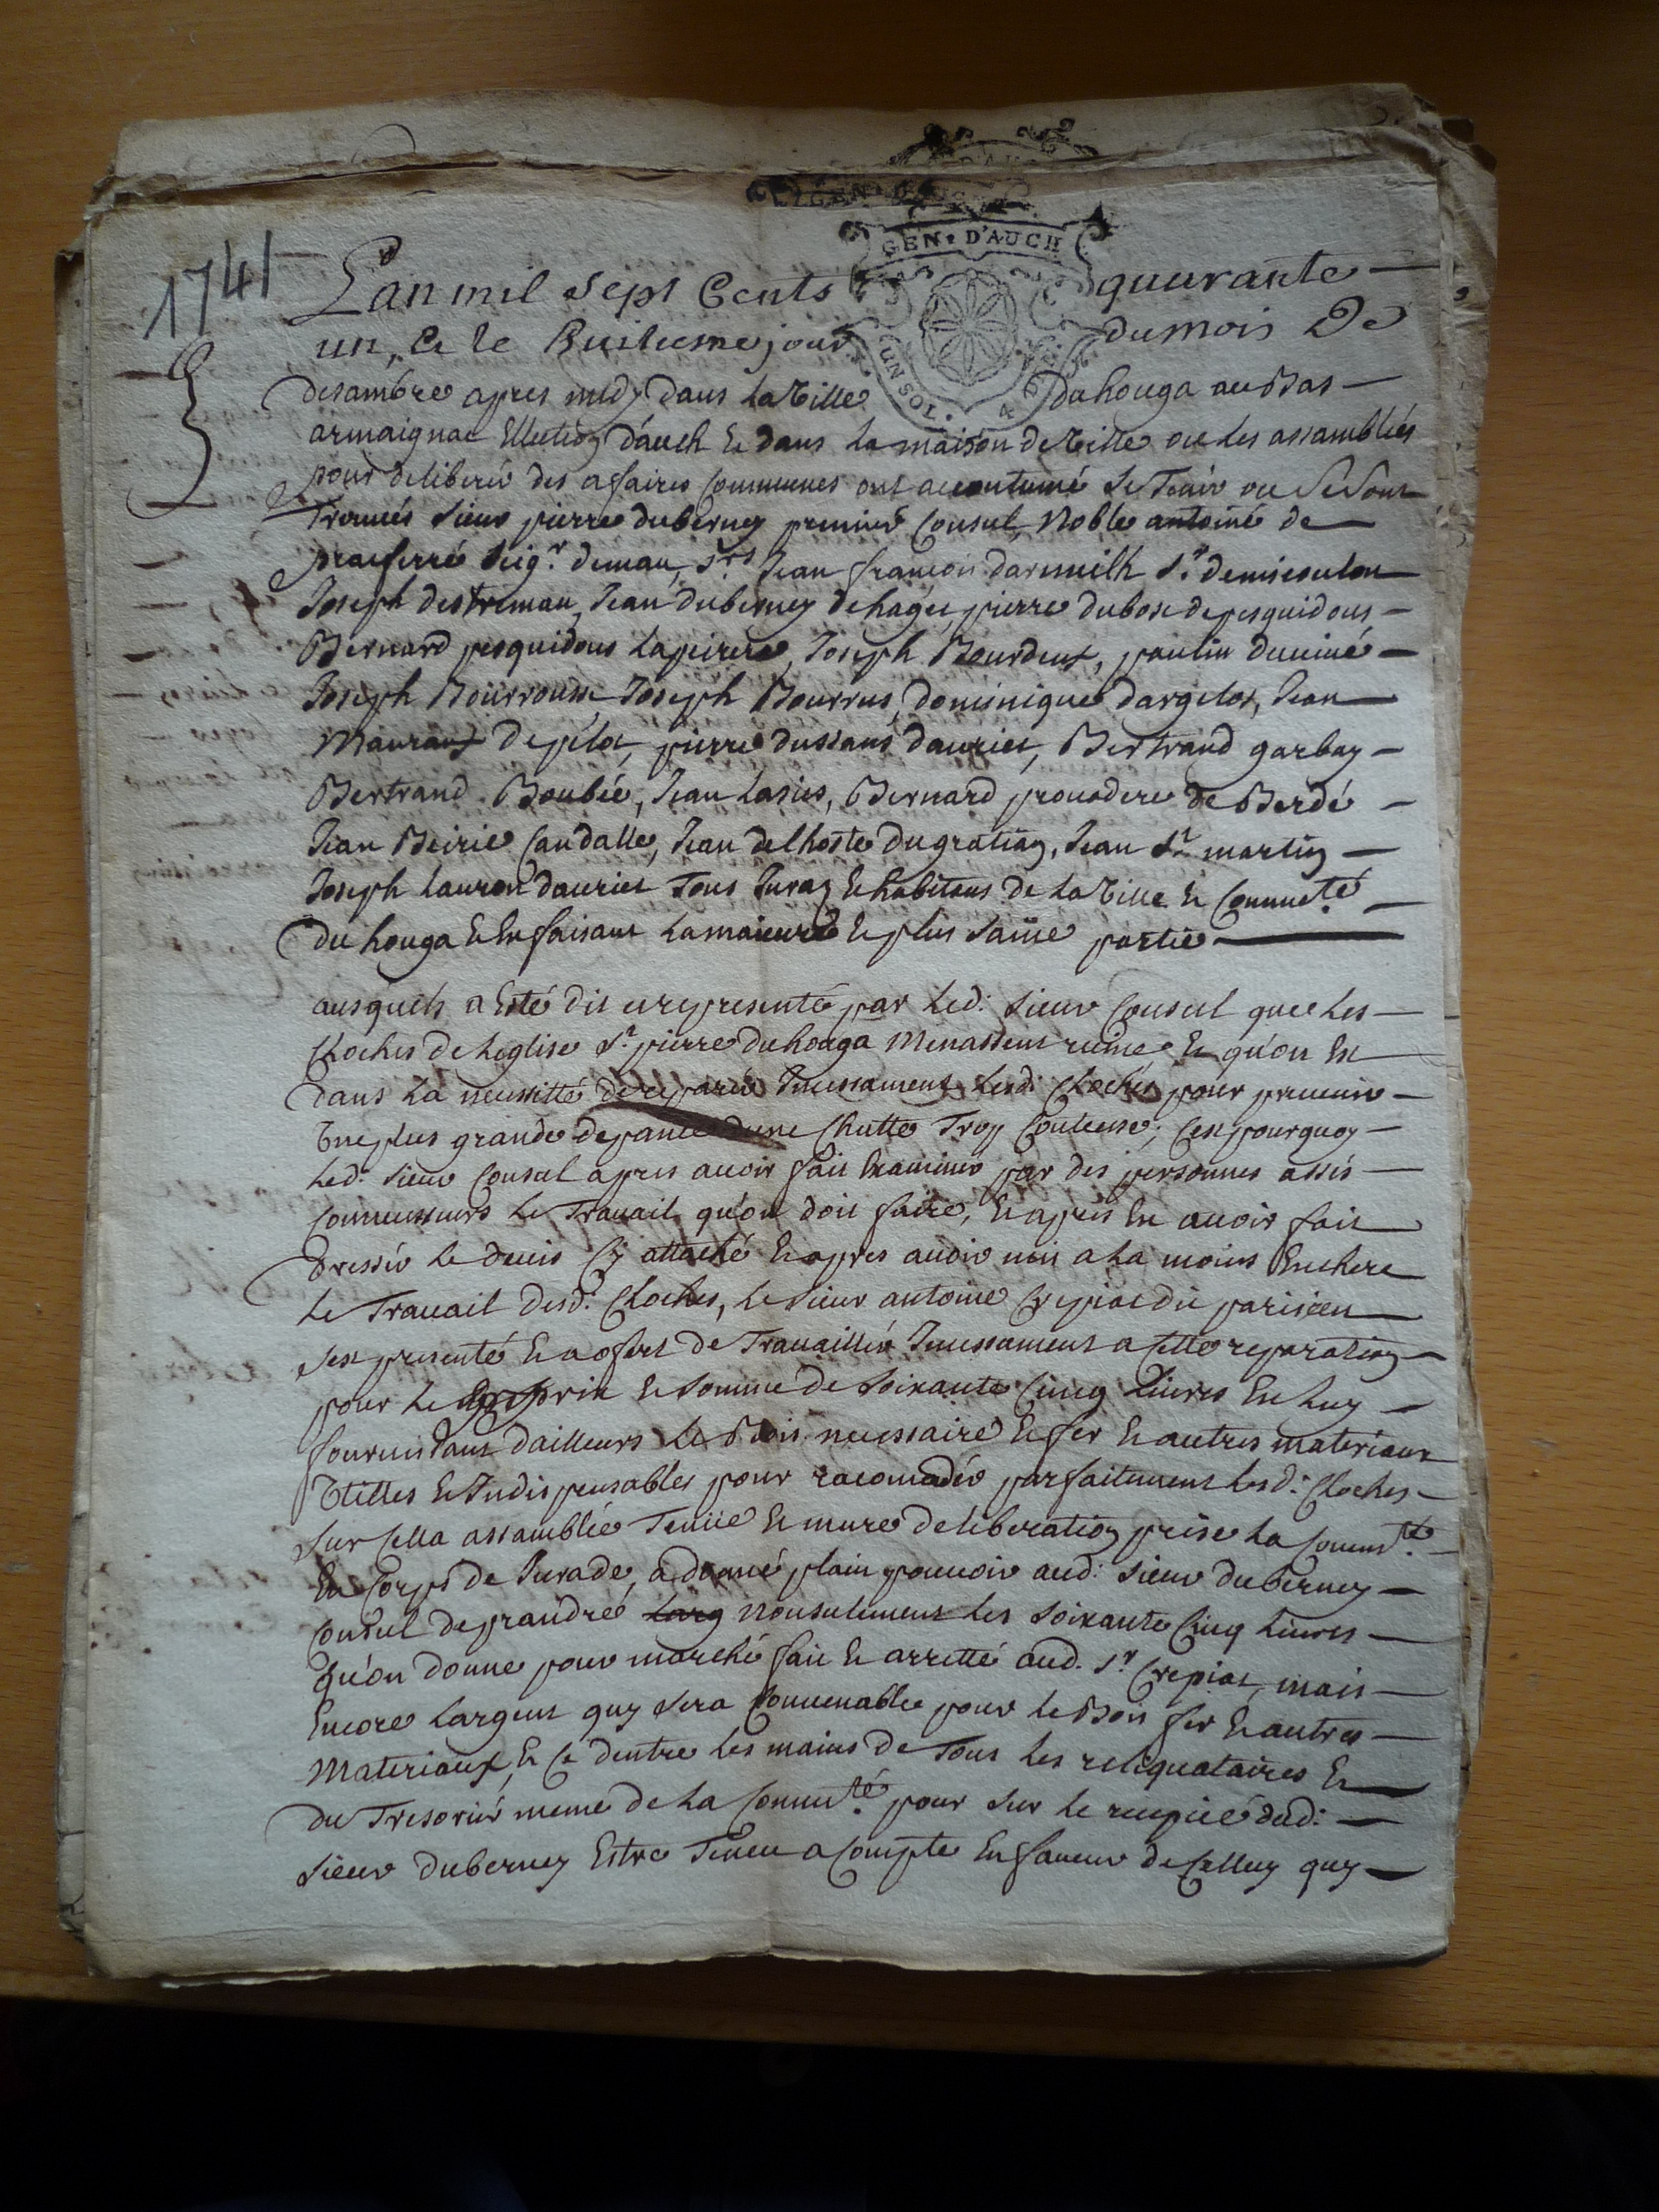 GEN. D'AUCH
UN SOL.
1741
Lan mil sept Cents quuvante
un, Et le huitiesme jour du mois De
desambre apres midy dans la Ville du houga au Bas
armaignac Ellection d'auch Et dans la maison de Ville ou les assamblées
pour deliberér des afaires Communes ont accoutumé se Tenir ou se sont
Trouvés sieur pierre duberney premier Consul, Noble antoiné de
praeferré seigr. deman, Srs Jean francois darmeilh Sr. demiesoulon
Joseph destreman, Jean duberney de hagét, pierre dubosc de pesquidous
Bernard pesquidous Lapeirere, Joseph Bourdens, paulin duviné
Joseph Bourrousse Joseph Bourrus, dominique dargelos, Jean
Mauran de plot, pierre dussans dauriet, Bertrand garbay
Bertrand Boubée, Jean Lasies, Bernard prouadere de Berdé
Jean Beirie Candalle, Jean delhoste du gratian, Jean St martin
Joseph Lauron dauriet Tous Juraz Et habitans de La Ville Et Communté
du houga Et En faisant La maieure Et plus saine partie
ausquels a Esté dit et representé par Led: sieur Consul que Les
Cloches de Leglise St. pierre du houga Menassent ruine Et qu'on Est
dans La necessitté de reparér Incessament Lesd: Cloches pour prevenir
Une plus grande depance dune Chutte Trop Couteuse; Cest pourquoy
Led: sieur Consul apres avoir fait Examiner par des personnes assés
Connoisseurs Le Travail qu'on doit faire, Et apres En avoir fait
dressér Le devis Cy attaché Et apres avoir mis a La moins Enchere
Le Travail desd: Cloches, Le sieur antoine Crepiac dit parisien
sest presenté Et a ofert de Travaillér Incessament a Cette reparation
pour Le prix Et somme de soixante Cinq Livres En Luy
fournissant dailleurs Le Bois necessaire Et fer Et autres materiaux
Utilles Et Indispensables pour racomodér parfaitement Lesd: Cloches
sur Cella assamblée Tenüe Et mure deliberation prise La Commté.
En Corps de Jurade, a donné plain pouvoir aud: sieur duberney
Consul de prandré Larg nonsulement Les soixante Cinq Livres
qu'on donne pour marché fait Et arretté aud. Sr. Crepiac, mais
Encore Largent quy sera Convenable pour Le Bois fer Et autres
Materiaux, Et Ce dentre Les mains de Tous Les reliquataires Et
du Tresoriér meme de La Communté. pour sur Le recepicé dud:
sieur duberney Estre Teneu a Compte En faveur de Celluy quy